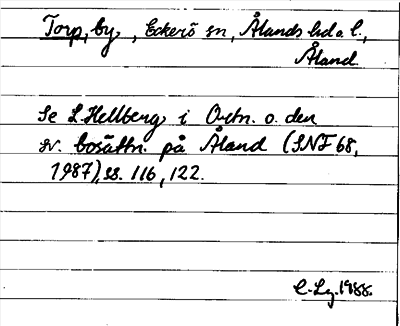 Torp, by, Eckerö sn, Ålands hd o. l.,
Åland
Se L. Hellberg i Ortn. o. den
sv. bosättn. på Åland (SNF 68,
1987), ss. 116, 122.
C. Lg. 1988.